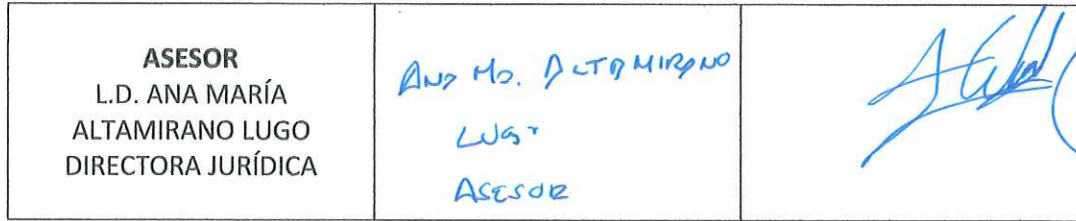 ASESOR
L.D. ANA MARÍA
ALTAMIRANO LUGO
DIRECTORA JURÍDICA
ANA Ma. ALTAMIRANO
LUGO
ASESOR